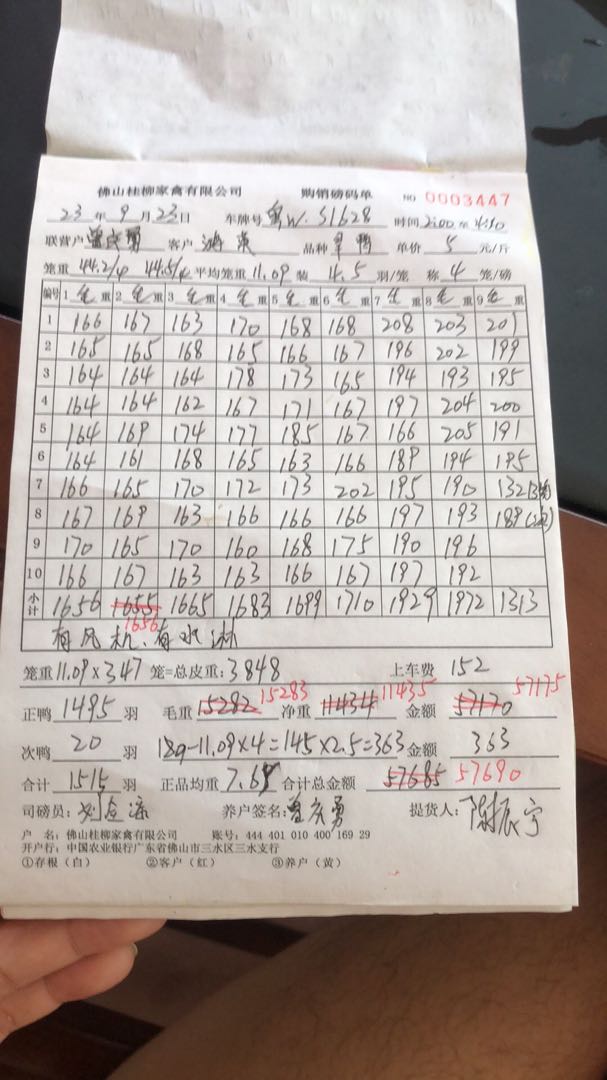 佛山桂柳家禽有限公司 购销磅码单 NO 0003447
23年9月23日 车牌号 粤W.S1628 时间 2:00 至 4:10
联营户 曾庆勇 客户 品种 单价 5 元/斤
笼重 44.2/4 44.5/4 平均笼重 11.09 装 4.5 羽/笼 称 4 笼/磅
编号 1 毛重 2 毛重 3 毛重 4 毛重 5 毛重 6 毛重 7 毛重 8 毛重 9 毛重
1 166 167 163 170 168 168 208 203 201
2 165 165 168 165 166 167 196 202 199
3 164 164 164 178 173 165 194 193 195
4 164 164 162 167 171 167 197 204 200
5 164 169 174 177 185 167 166 205 191
6 164 161 168 165 163 166 189 194 195
7 166 165 170 172 173 202 195 190 132
8 167 169 163 166 166 166 197 193 189
9 170 165 170 160 168 175 190 196
10 166 167 163 163 166 167 197 192
小计 1656 1655 1665 1683 1699 1710 1929 1972 1313
1656
有风机、有水淋
笼重 11.09×347 笼=总皮重:3848 上车费 152
正鸭 1495 羽 毛重 15282 15283 净重 11434 11435 金额 57170 57175
次鸭 20 羽 189-11.09×4=145×2.5=363 金额 363
合计 1515 羽 正品均重 7.65 合计总金额 57685 57690
司磅员: 养户签名: 曾庆勇 提货人: 陈振宇
户 名: 佛山桂柳家禽有限公司 账号: 444 401 010 400 169 29
开户行: 中国农业银行广东省佛山市三水区三水支行
①存根（白） ②客户（红） ③养户（黄）